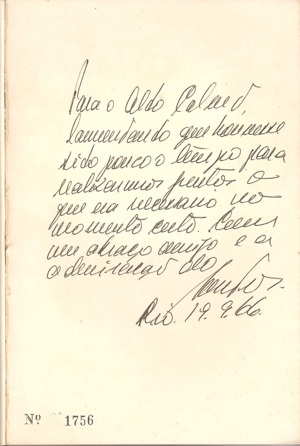 Para o Aldo Calvet,
lamentando que houvesse
sido pouco o tempo para
realizarmos juntos o
que era necessário no
momento certo. Com
um abraço amigo e a
admiração do
Rio. 19.9.66.
Nº 1756